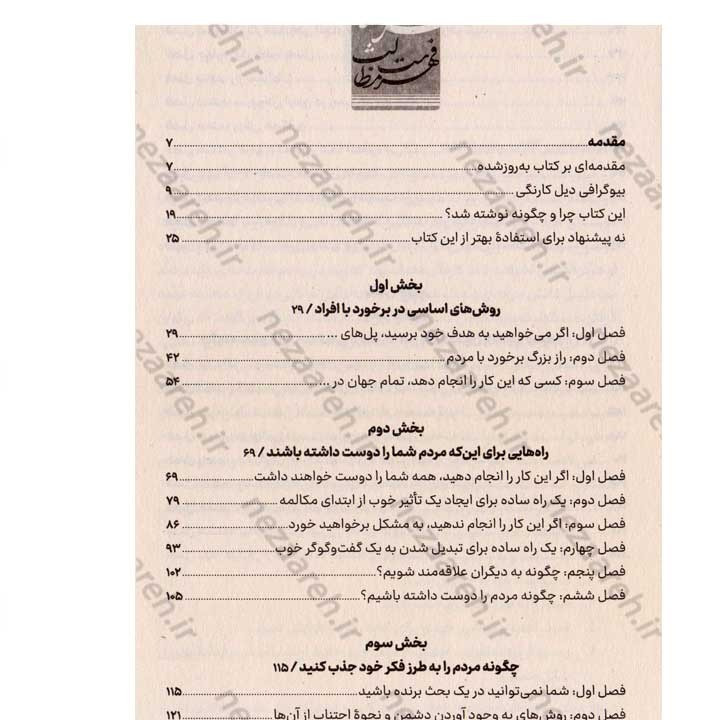 فهرست مطالب
مقدمه ۷
مقدمه‌ای بر کتاب به‌روزشده ۷
بیوگرافی دیل کارنگی ۹
این کتاب چرا و چگونه نوشته شد؟ ۱۹
نه پیشنهاد برای استفادهٔ بهتر از این کتاب ۲۵
بخش اول
روش‌های اساسی در برخورد با افراد / ۲۹
فصل اول: اگر می‌خواهید به هدف خود برسید، پل‌های ... ۲۹
فصل دوم: راز بزرگ برخورد با مردم ۴۲
فصل سوم: کسی که این کار را انجام دهد، تمام جهان در ... ۵۴
بخش دوم
راه‌هایی برای این‌که مردم شما را دوست داشته باشند / ۶۹
فصل اول: اگر این کار را انجام دهید، همه شما را دوست خواهند داشت ۶۹
فصل دوم: یک راه ساده برای ایجاد یک تأثیر خوب از ابتدای مکالمه ۷۹
فصل سوم: اگر این کار را انجام ندهید، به مشکل برخواهید خورد ۸۶
فصل چهارم: یک راه ساده برای تبدیل شدن به یک گفت‌وگوگر خوب ۹۳
فصل پنجم: چگونه به دیگران علاقه‌مند شویم؟ ۱۰۲
فصل ششم: چگونه مردم را دوست داشته باشیم؟ ۱۰۵
بخش سوم
چگونه مردم را به طرز فکر خود جذب کنید / ۱۱۵
فصل اول: شما نمی‌توانید در یک بحث برنده باشید ۱۱۵
فصل دوم: روش‌های به وجود آوردن دشمن و نحوهٔ اجتناب از آن‌ها ۱۲۱
nezaareh.ir